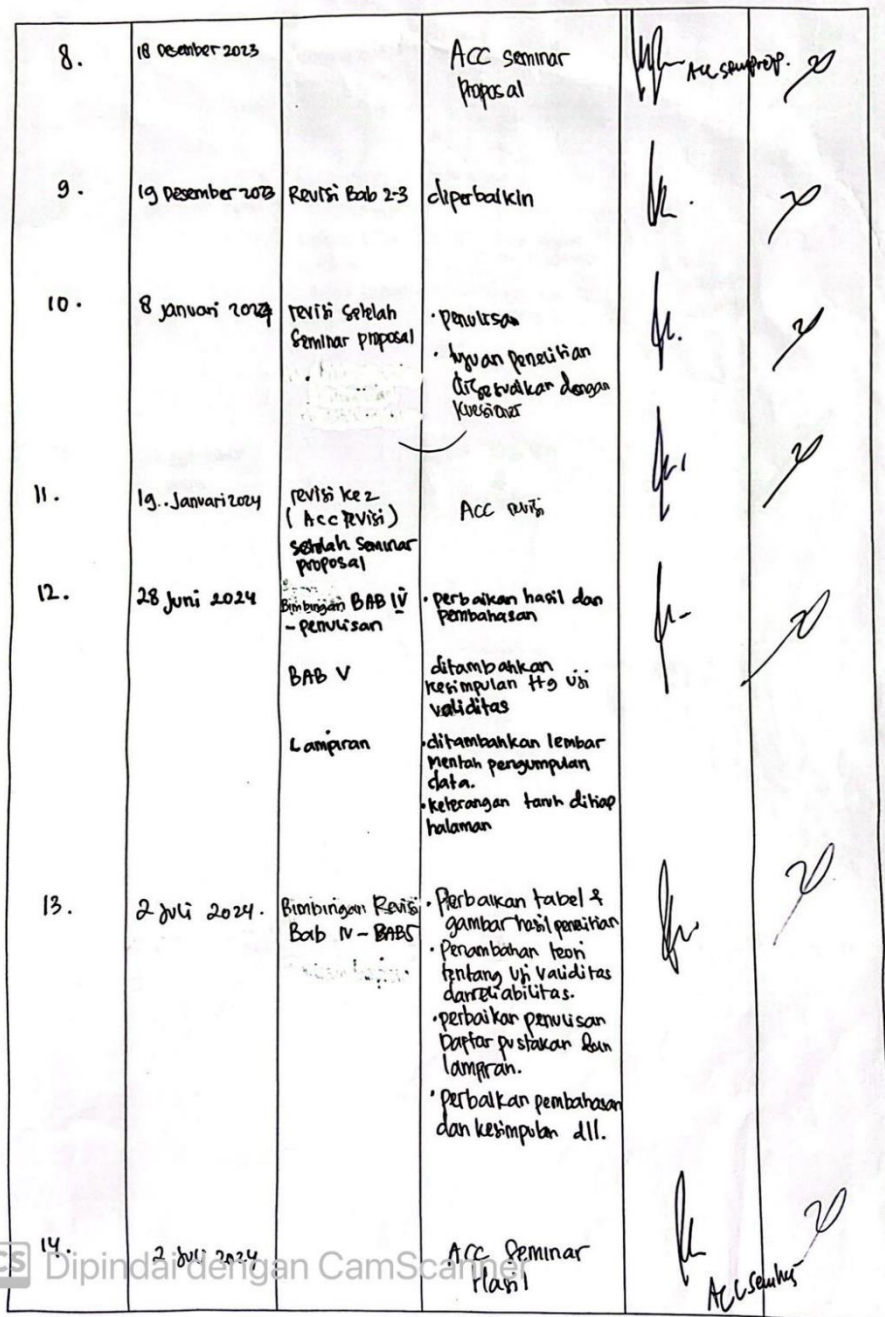 8.
18 Desember 2023
ACC seminar
Proposal
ACC semprop.
9.
19 Desember 2023
Revisi Bab 2-3
diperbaikin
10.
8 januari 2024
revisi setelah
Seminar proposal
• penulisan
• tujuan penelitian
disesuaikan dengan
kuesioner
11.
19. Januari 2024
revisi ke 2
(Acc Revisi)
setelah seminar
proposal
ACC revisi
12.
28 Juni 2024
Bimbingan BAB IV
- penulisan
• perbaikan hasil dan
pembahasan
BAB V
ditambahkan
kesimpulan ttg uji
validitas
Lampiran
• ditambahkan lembar
mentah pengumpulan
data.
• keterangan taruh ditiap
halaman
13.
2 Juli 2024.
Bimbingan Revisi
Bab IV - BAB 5
• Perbaikan tabel &
gambar hasil penelitian
• Penambahan teori
tentang uji validitas
dan reliabilitas.
• perbaikan penulisan
Daptar pustakan dan
lampiran.
• perbaikan pembahasan
dan kesimpulan dll.
14.
2 Juli 2024
ACC Seminar
Hasil
ACC semhas
CS Dipindai dengan CamScanner